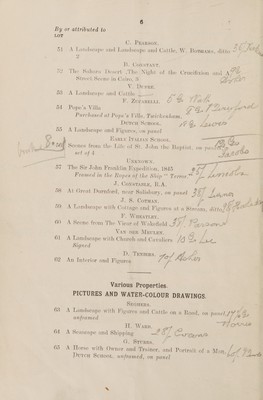 6
By or attributed to
LOT
C. PEARSON.
51 A Landscape and Landscape and Cattle, W. 
2
B. CONSTANT.
52 The Sahara Desert The Night of the Crucifixion and
Street Scene in Cairo, 3
V. DUPRE.
53 A Landscape and Cattle
F. ZUCARELLI.
54 Pope's Villa
Purchased at Pope's Villa, Twickenham.
DUTCH SCHOOL.
55 A Landscape and Figures, on panel
EARLY ITALIAN SCHOOL.
Scenes from the Life of St. John the Baptist, on panel
set of 4
UNKNOWN.
57 The Sir John Franklin Expedition, 1845
Painted in the Ropes of the Ship " Terror "
J. CONSTABLE, R.A.
58 At Great Durnford, near Salisbury, on panel
J. S. COTMAN.
59 A Landscape with Cottage and Figures at a Stream, ditto
F. WHEATLEY.
60 A Scene from The Vicar of Wakefield
VAN DER MEULEN.
61 A Landscape with Church and Cavaliers
Signed
D. TENIERS.
62 An Interior and Figures
Various Properties.
PICTURES AND WATER-COLOUR DRAWINGS.
SEGHERS.
63 A Landscape with Figures and Cattle on a Road, on panel
unframed
H. WARD.
64 A Seascape and Shipping
G. STUBBS.
65 A Horse with Owner and Trainer, and Portrait of a Man,
DUTCH SCHOOL, unframed, on panel